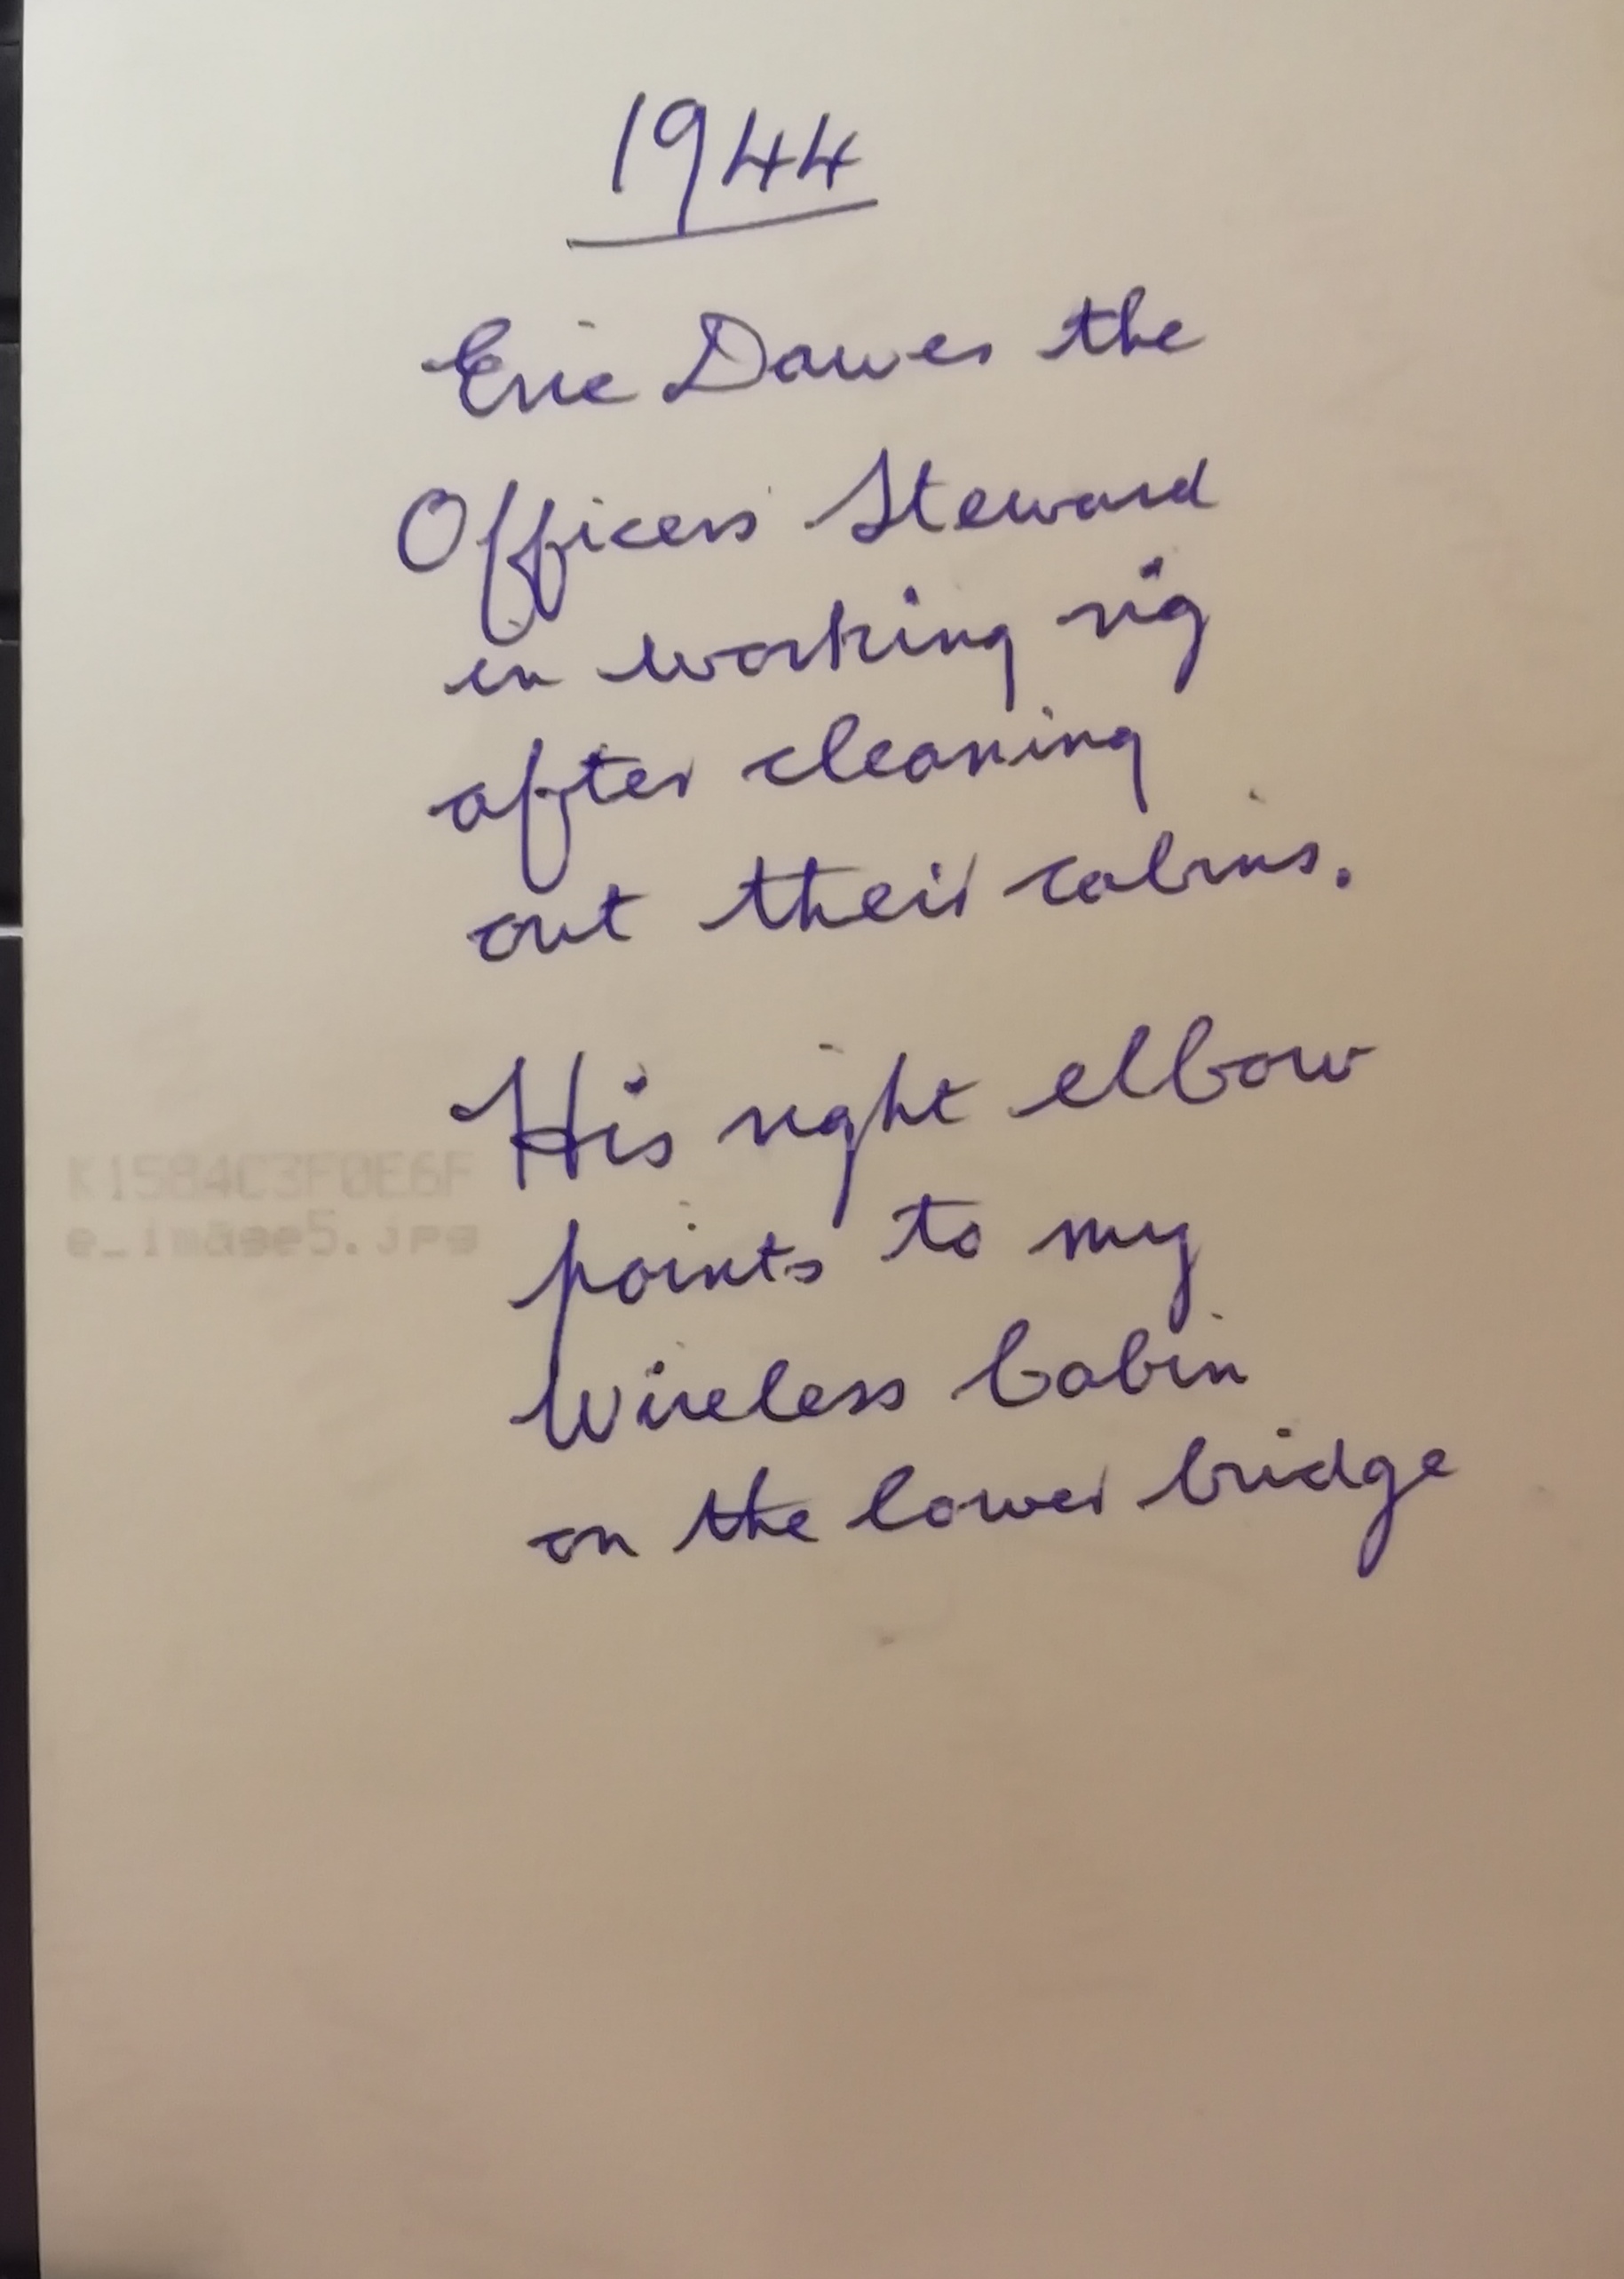 1944
Eric Dawes the
Officers' Steward
in working rig
after cleaning
out their cabins.
His right elbow
points to my
Wireless Cabin
on the lower bridge
K1584C3F0E6F
e_image5.jpg